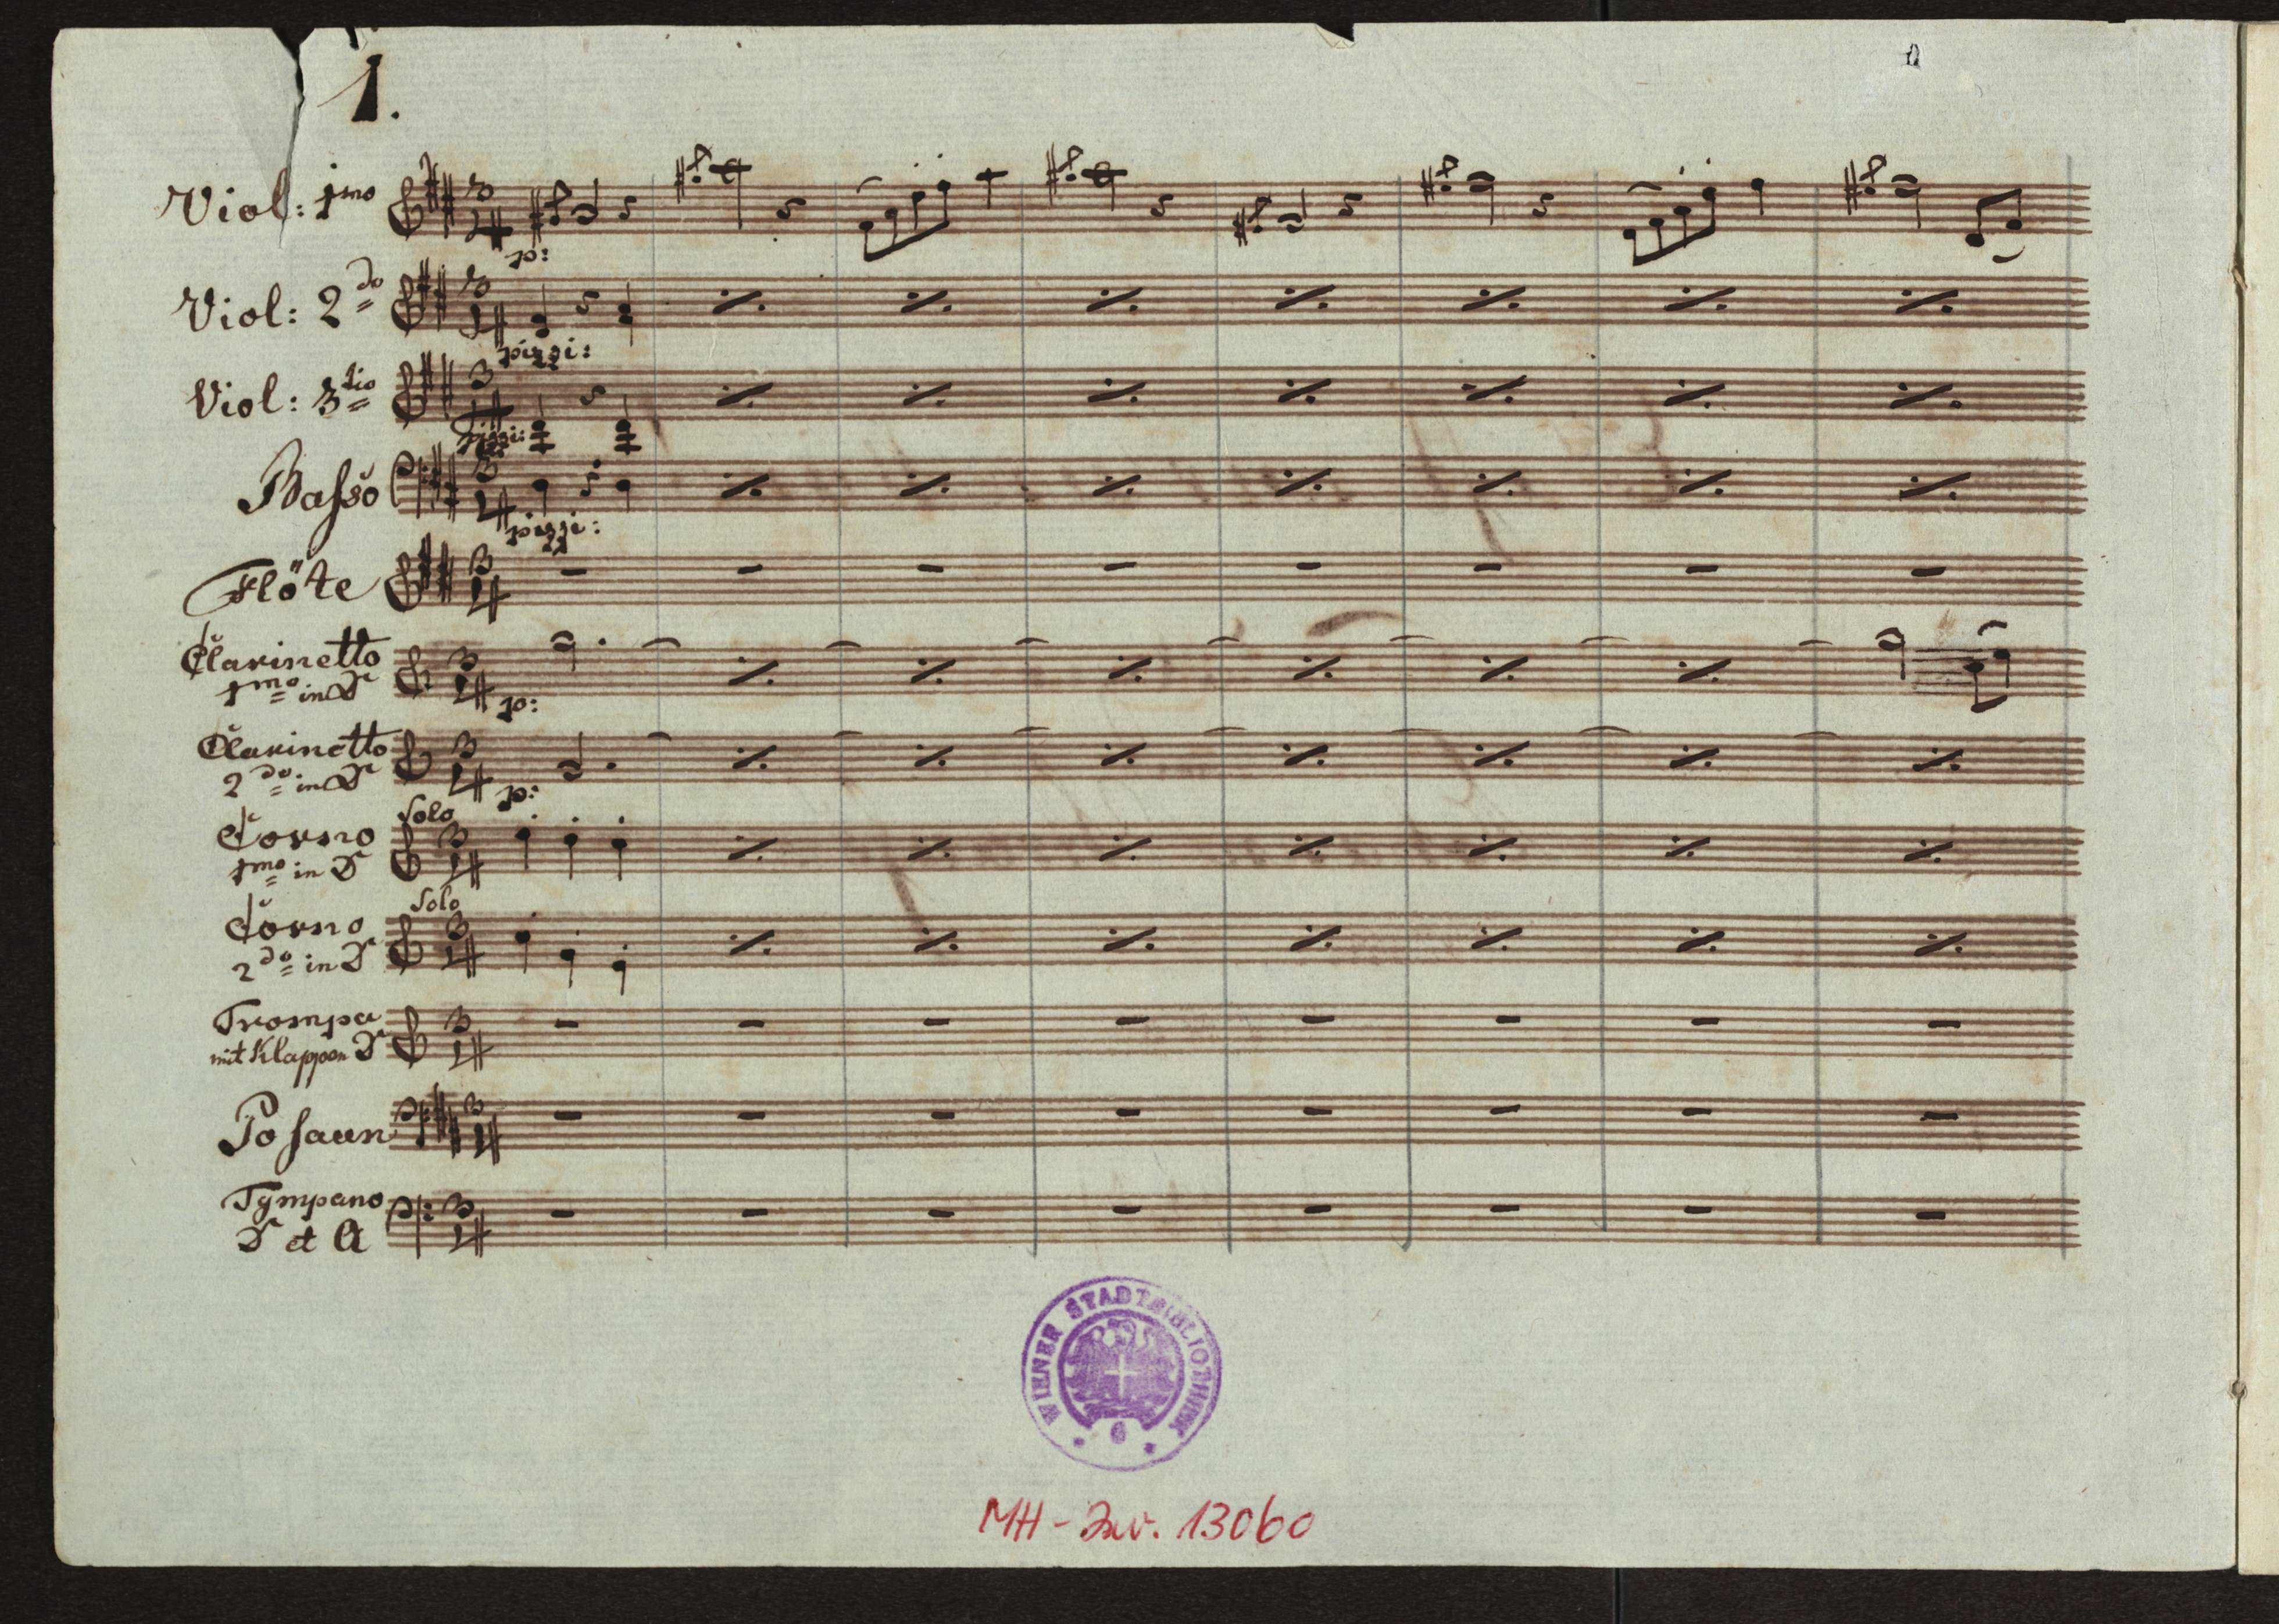 1.
Viol: 1mo
p:
Viol: 2do
pizzi:
Viol: 3tio
pizzi:
Baſso
pizzi:
Flöte
Clarinetto
1mo in D
p:
Clarinetto
2do in D
p:
Solo
Corno
1mo in D
Solo
Corno
2do in D
Trompa
mit Klappen D
Poſaun
Tympano
D et A
WIENER STADTBIBLIOTHEK
MH-Inv. 13060